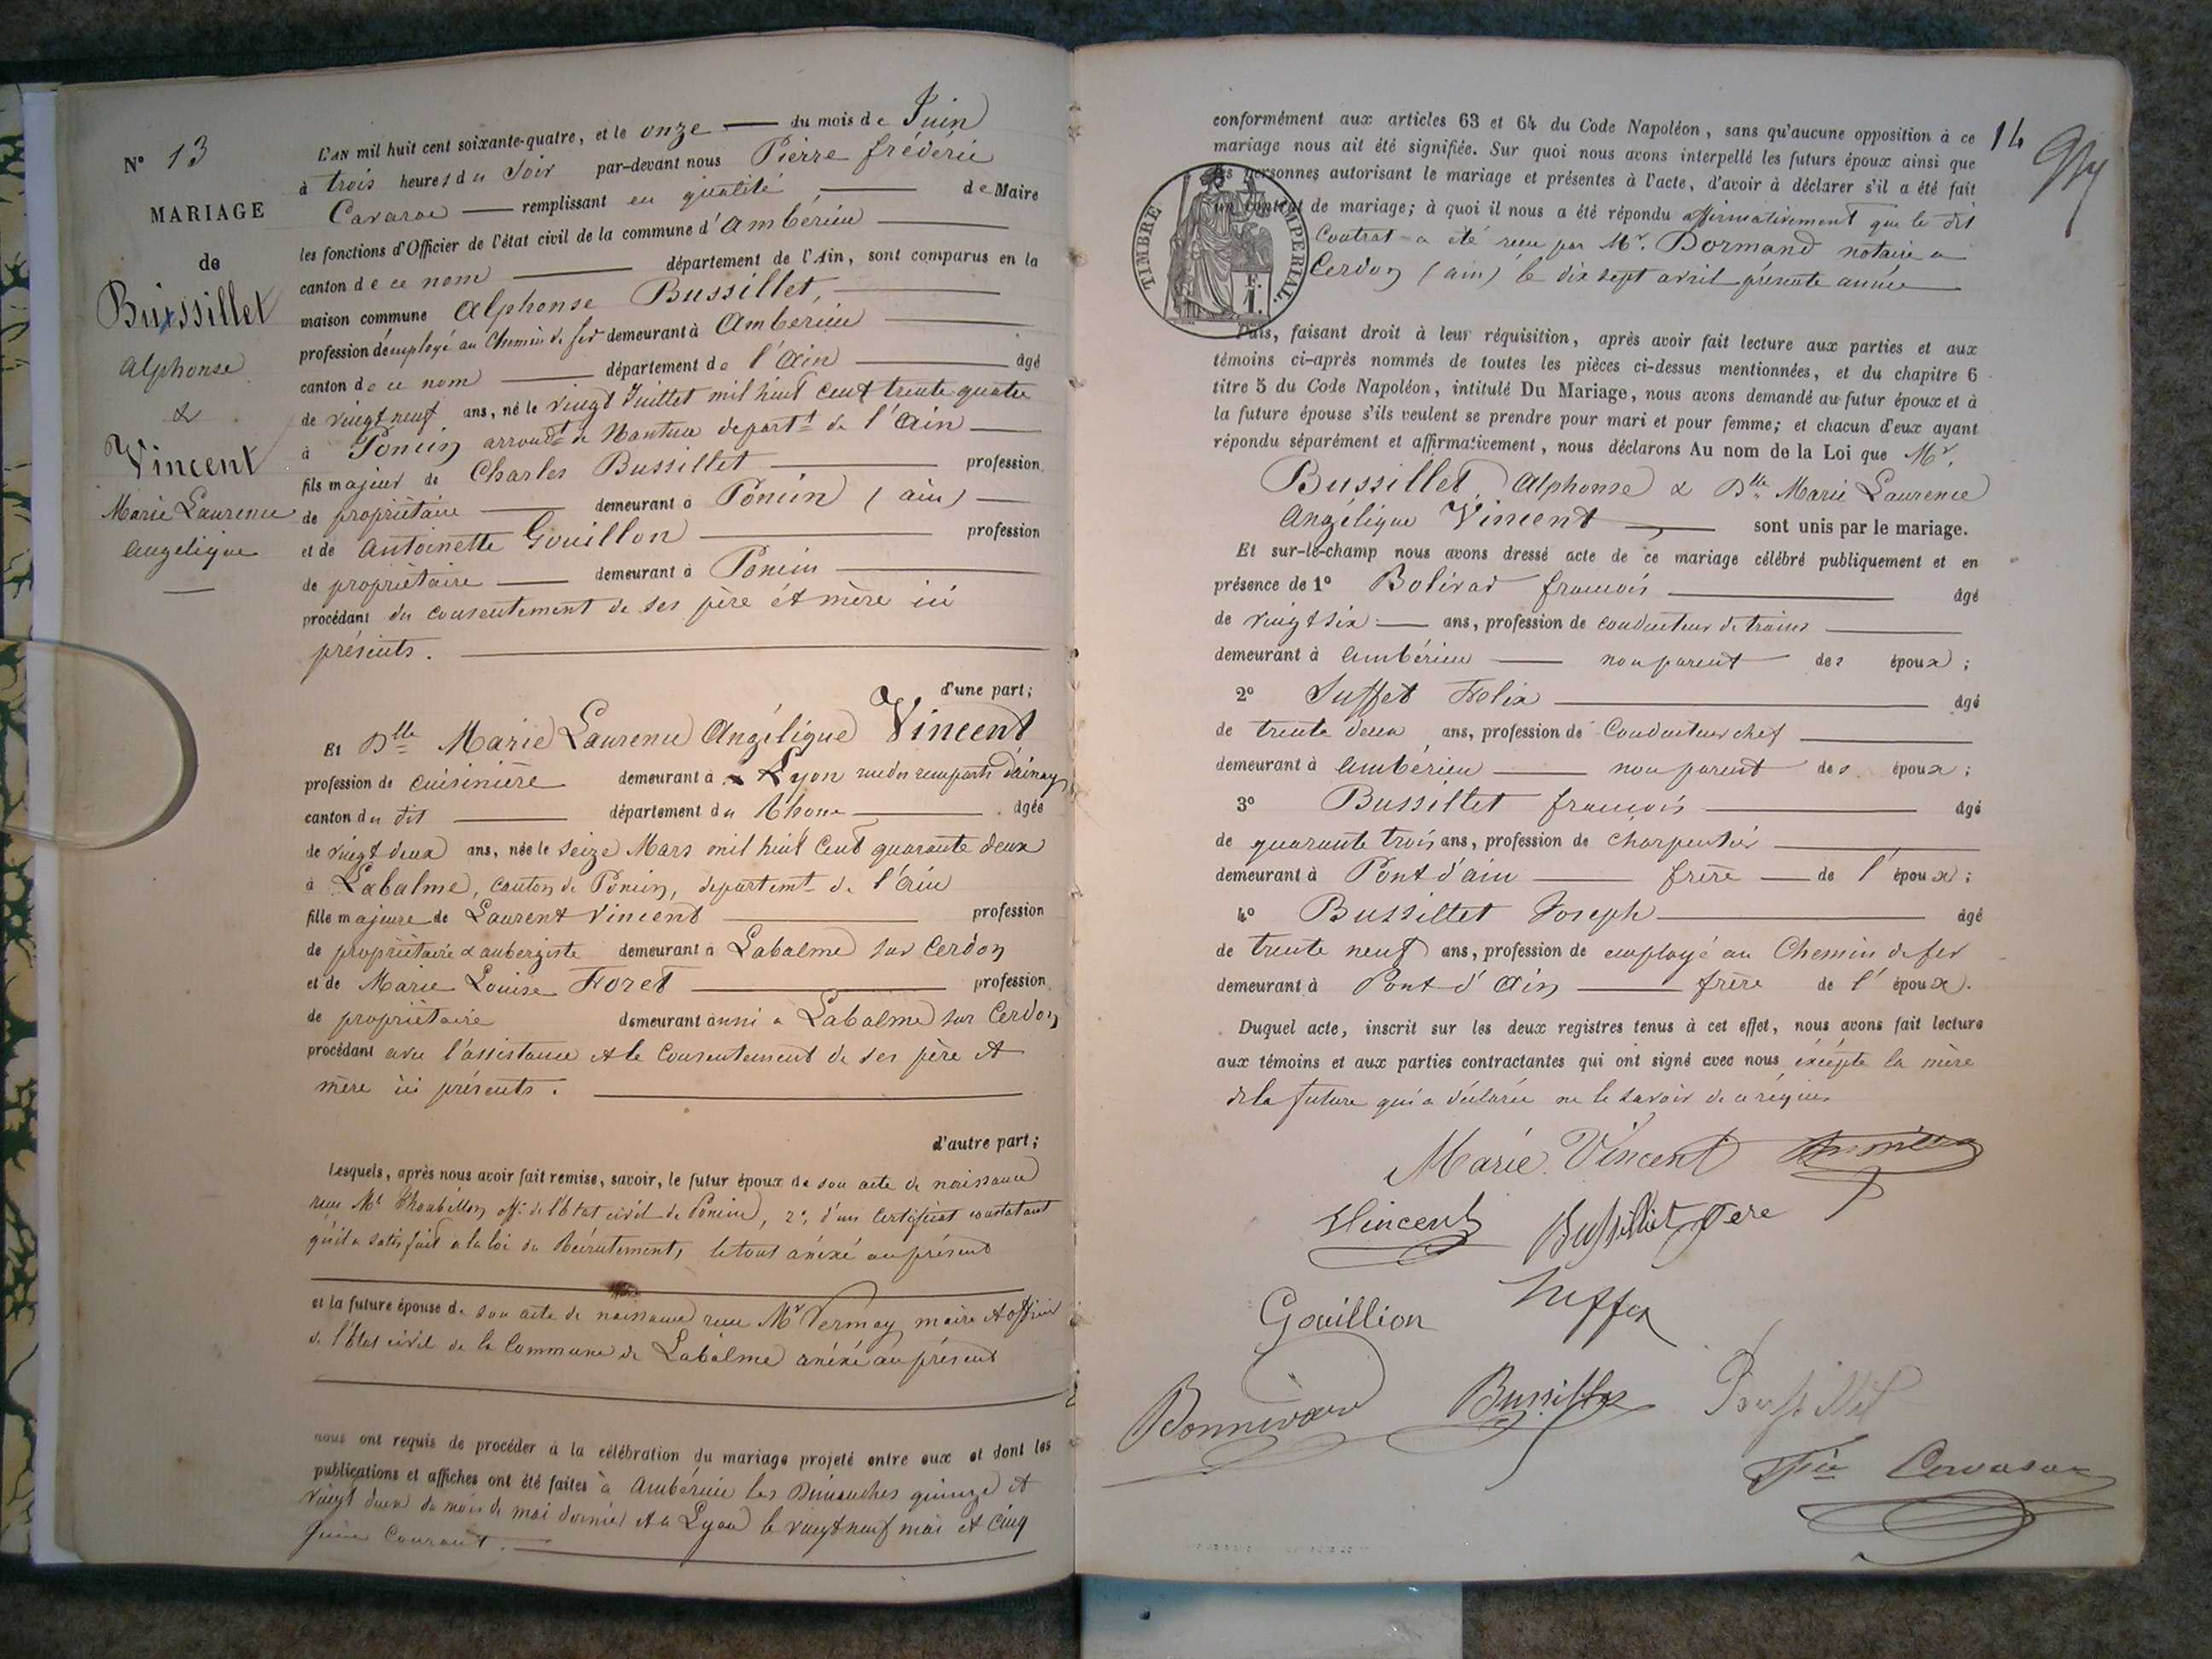 N° 13
MARIAGE
de
Bussillet
Alphonse
&
Vincent
Marie Laurence
Angélique
L'AN mil huit cent soixante-quatre, et le onze du mois de Juin
à trois heures du Soir par-devant nous Pierre fréderic
remplissant en qualité de Maire
les fonctions d'Officier de l'état civil de la commune d'Ambérieu
canton de ce nom département de l'Ain, sont comparus en la
maison commune Alphonse Bussillet,
profession d'employé au Chemin de fer demeurant à Ambérieu
canton de ce nom département de l'Ain âgé
de vingt neuf ans, né le vingt Juillet mil huit cent trente quatre
à Poncin arroudt de Nantua départt de l'Ain
fils majeur de Charles Bussillet profession
de propriétaire demeurant à Poncin (ain)
et de Antoinette Gouillon profession
de propriétaire demeurant à Poncin
procédant du consentement de ses père et mère ici
présents.
d'une part;
Et Dlle Marie Laurence Angélique Vincent
profession de cuisinière demeurant à Lyon rue des remparts d'ainay
canton du dit département du Rhone âgée
de vingt deux ans, née le seize Mars mil huit cent quarante deux
à Labalme, canton de Poncin, départemt de l'Ain
fille majeure de Laurent Vincent profession
de propriétaire & aubergiste demeurant à Labalme sur Cerdon
et de Marie Louise Foret profession
de propriétaire demeurant aussi à Labalme sur Cerdon
procédant avec l'assistance et le consentement de ses père et
mère ici présents.
d'autre part;
Lesquels, après nous avoir fait remise, savoir, le futur époux de son acte de naissance
reçu Mr off. de l'Etat civil de Poncin, 2°, d'un certificat constatant
qu'il a satisfait a la loi du Recrutement, le tout anéxé au présent
et la future épouse de son acte de naissance reçu Mr Vermay maire et officier
de l'Etat civil de la Commune de Labalme anéxé au présent
nous ont requis de procéder à la célébration du mariage projeté entre eux et dont les
publications et affiches ont été faites à Ambérieu les Dimanches quinze et
vingt deux du mois de mai dernier et à Lyon le vingt neuf mai et cinq
Juin Courant.
conformément aux articles 63 et 64 du Code Napoléon, sans qu'aucune opposition à ce
14
mariage nous ait été signifiée. Sur quoi nous avons interpellé les futurs époux ainsi que
les personnes autorisant le mariage et présentes à l'acte, d'avoir à déclarer s'il a été fait
un contrat de mariage; à quoi il nous a été répondu affirmativement que le dit
Contrat a été reçu par Mr. Dormand notaire a
Cerdon (ain) le dix sept avril présente année
TIMBRE IMPÉRIAL.
1 F.
Puis, faisant droit à leur réquisition, après avoir fait lecture aux parties et aux
témoins ci-après nommés de toutes les pièces ci-dessus mentionnées, et du chapitre 6
titre 5 du Code Napoléon, intitulé Du Mariage, nous avons demandé au futur époux et à
la future épouse s'ils veulent se prendre pour mari et pour femme; et chacun d'eux ayant
répondu séparément et affirmativement, nous déclarons Au nom de la Loi que Mr.
Bussillet Alphonse & Dlle Marie Laurence
Angélique Vincent sont unis par le mariage.
Et sur-le-champ nous avons dressé acte de ce mariage célébré publiquement et en
présence de 1° Bolivard françois âgé
de vingt six ans, profession de conducteur de trains
demeurant à Ambérieu non parent des époux;
2° Suffet Félix âgé
de trente deux ans, profession de Conducteur chef
demeurant à Ambérieu non parent des époux;
3° Bussillet françois âgé
de quarante trois ans, profession de charpentier
demeurant à Pont d'ain frère de l'époux;
4° Bussillet Joseph âgé
de trente neuf ans, profession de employé au Chemin de fer
demeurant à Pont d'Ain frère de l'époux.
Duquel acte, inscrit sur les deux registres tenus à cet effet, nous avons fait lecture
aux témoins et aux parties contractantes qui ont signé avec nous excépté la mère
de la future qui a déclarée ne le savoir de ce réquise
Marie Vincent
Vincent Bussillet père
Gouillion Suffet
Bonnivard Bussillet Bussillet